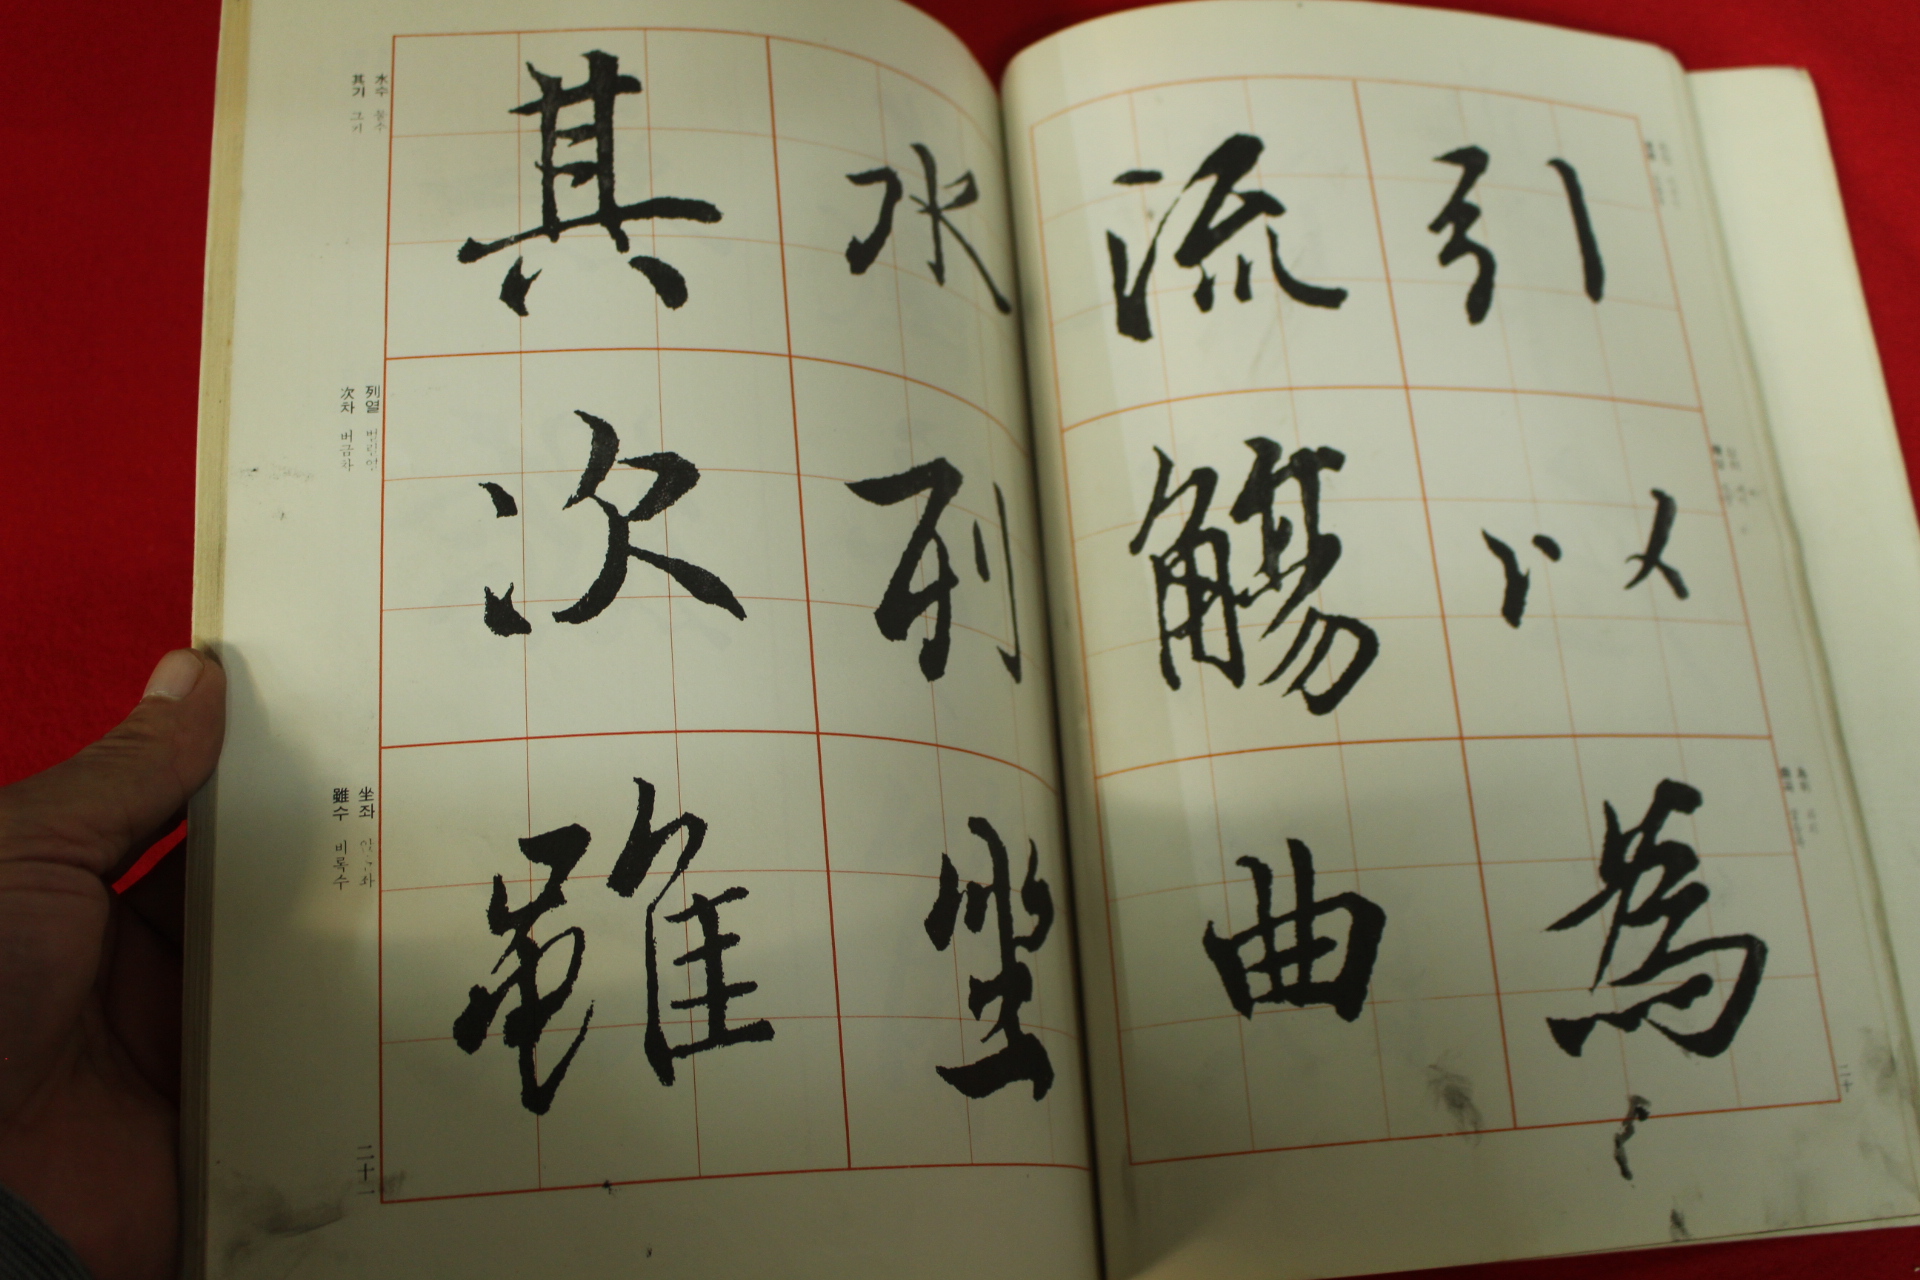 引以為
流觴曲
水列坐
其次雖
水수 물수
其기 그기
列열 벌릴열
次차 버금차
坐좌
雖수 비록수
二十一
二十